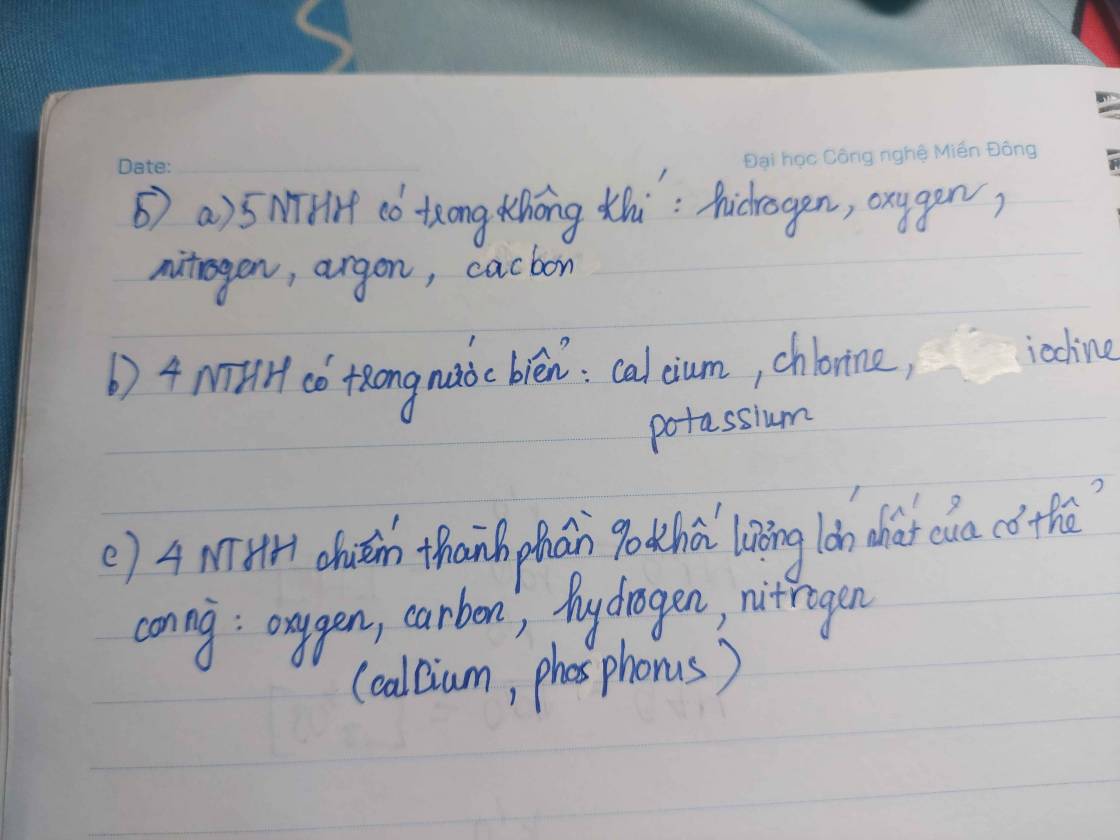 Date:
Đại học Công nghệ Miền Đông
5) a) 5 NTHH có trong không khí : hidrogen, oxygen,
nitrogen, argon, cacbon
b) 4 NTHH có trong nước biển : calcium , chlorine, iodine
potassium
c) 4 NTHH chiếm thành phần % khối lượng lớn nhất của cơ thể
con ng : oxygen, carbon, hydrogen, nitrogen
(calcium, phosphorus)